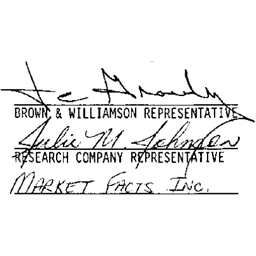 BROWN & WILLIAMSON REPRESENTATIVE
Julie M. Johnson
RESEARCH COMPANY REPRESENTATIVE
MARKET FACTS INC.